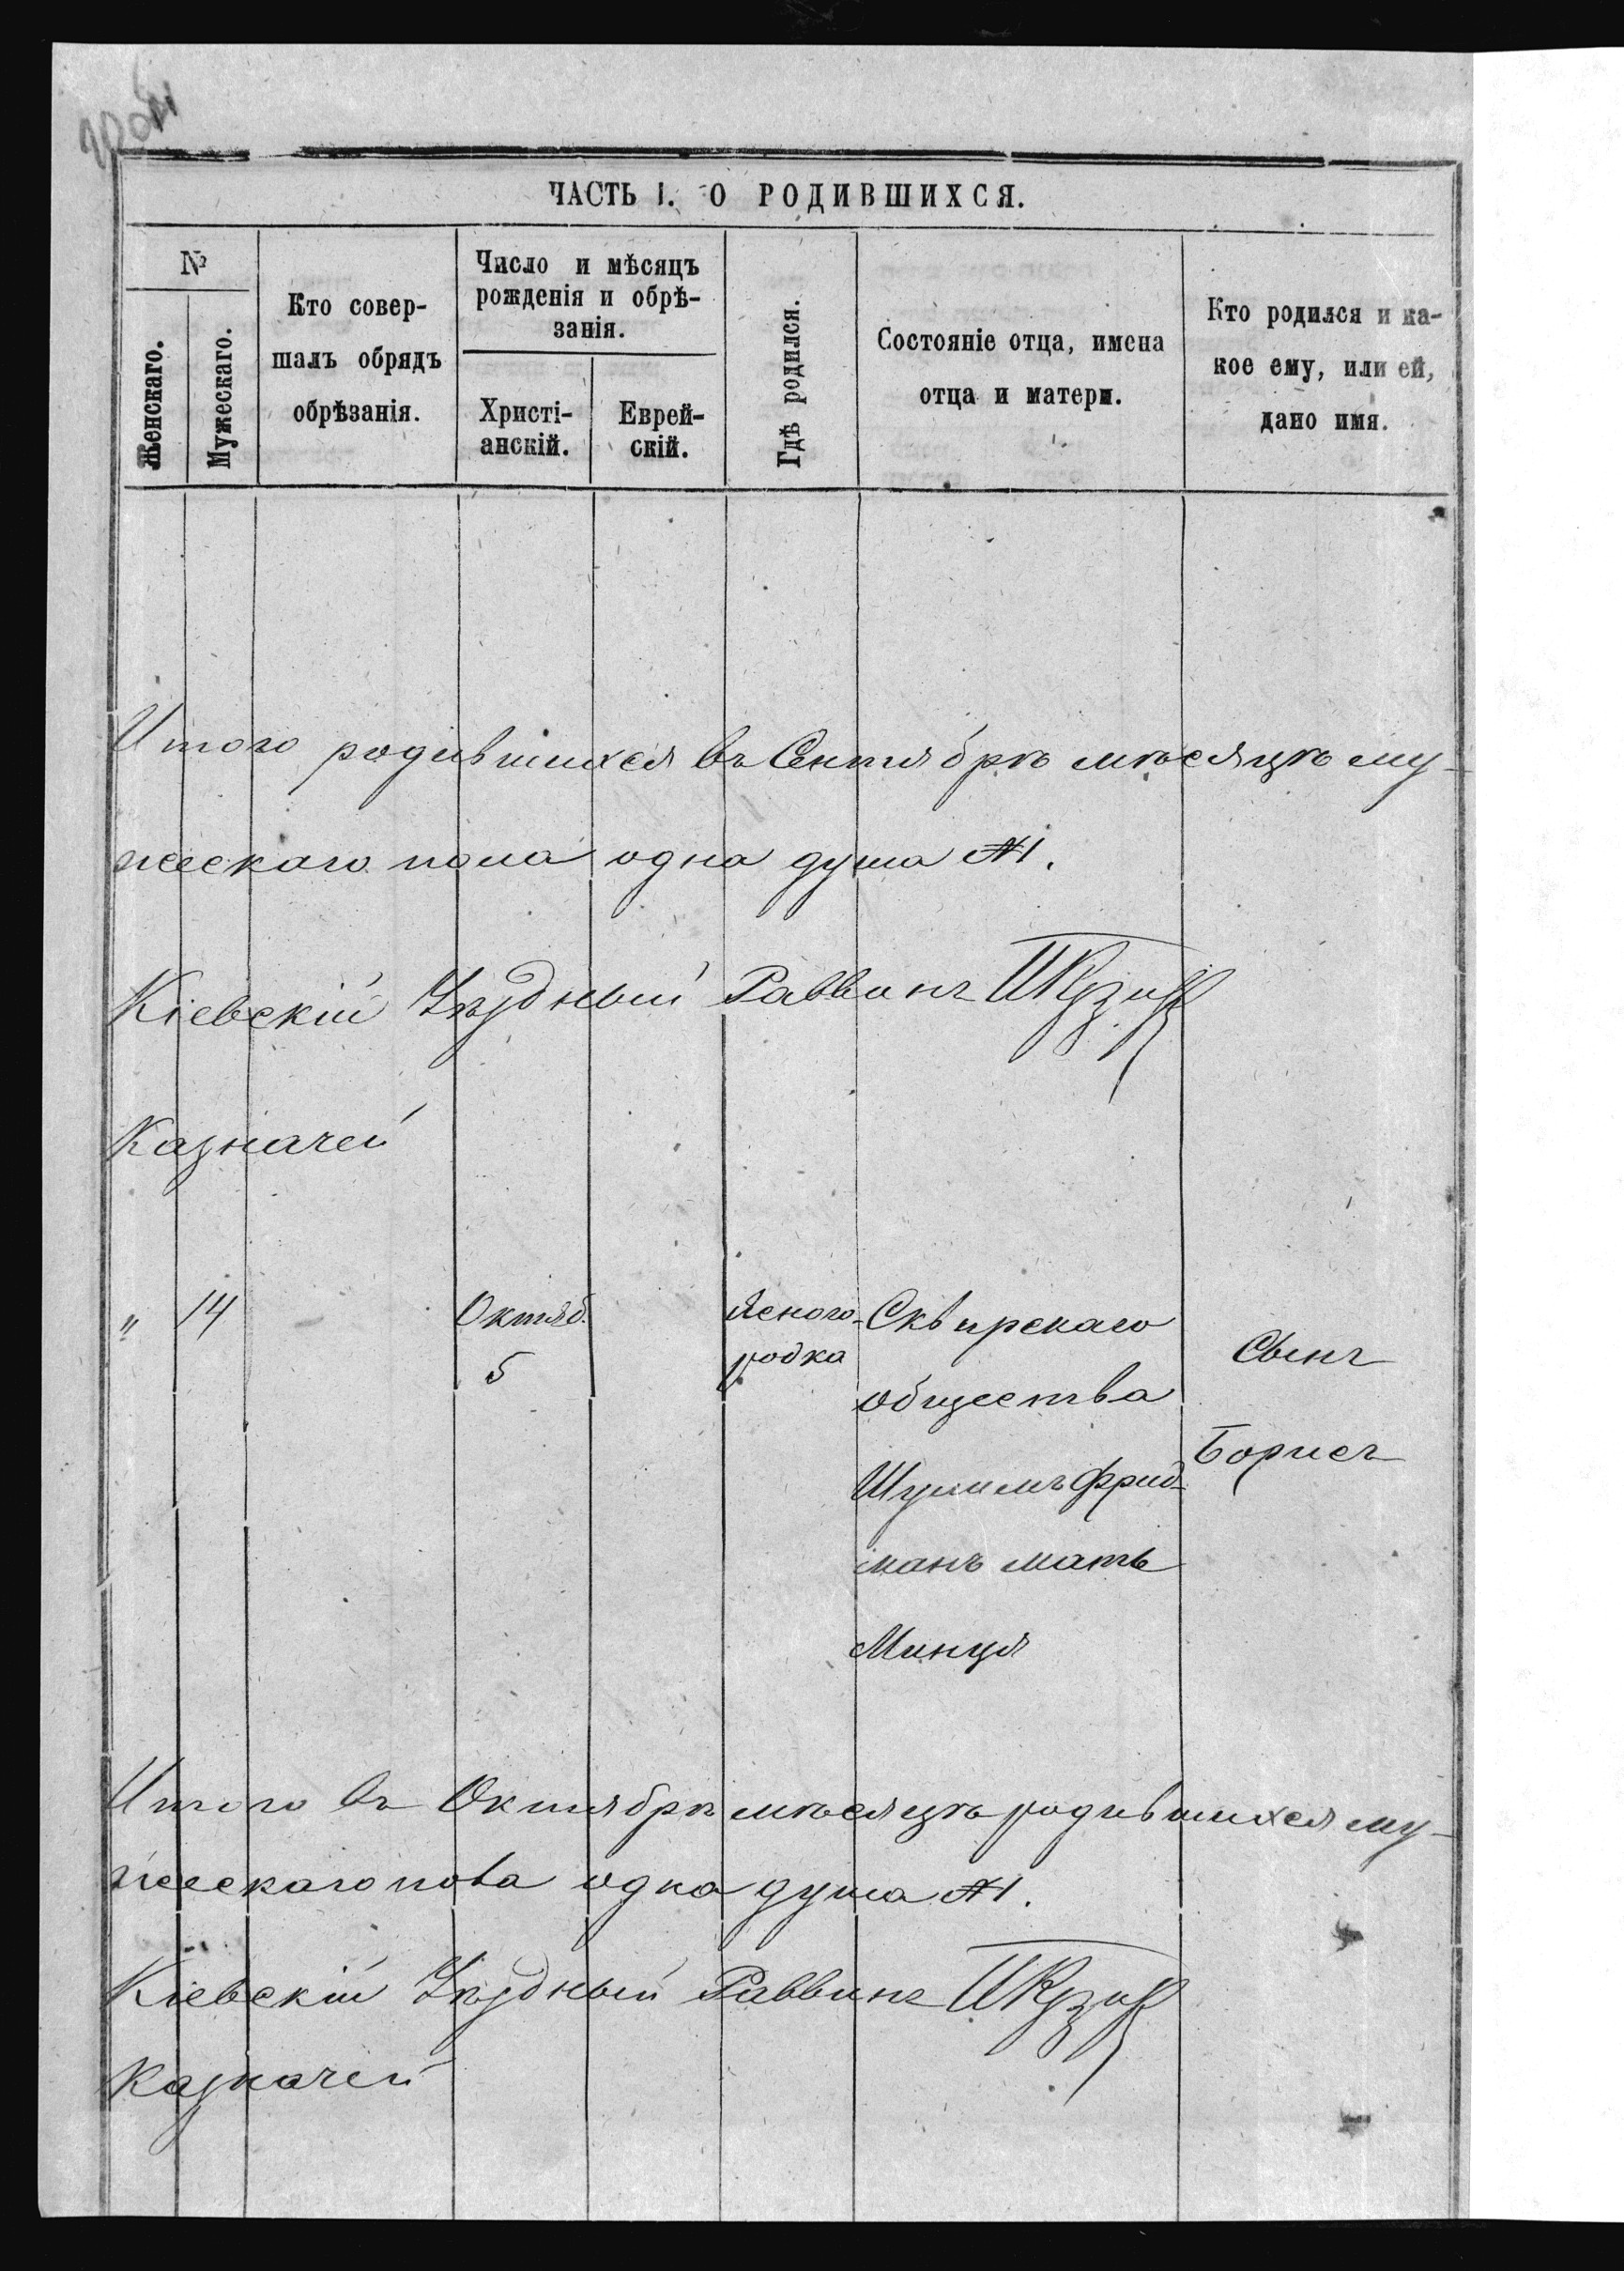 ЧАСТЬ I. О РОДИВШИХСЯ.
№
Женскаго.
Мужескаго.
Кто совер-
шалъ обрядъ
обрѣзанія.
Число и мѣсяцъ
рожденія и обрѣ-
занія.
Христі-
анскій.
Еврей-
скій.
Гдѣ родился.
Состояніе отца, имена
отца и матери.
Кто родился и ка-
кое ему, или ей,
дано имя.
Итого родившихся въ Сентябрѣ мѣсяцѣ му-
жескаго пола одна душа №1.
Кіевскій Уѣздный Раввинъ
Казначей
" 14
Октяб.
5
Ясного-
родка
Сквирскаго
общества
Шулимъ Фрид-
манъ мать
Минця
Сынъ
Борисъ
Итого въ Октябрѣ мѣсяцѣ родившихся му-
жескаго пола одна душа №1.
Кіевскій Уѣздный Раввинъ
Казначей